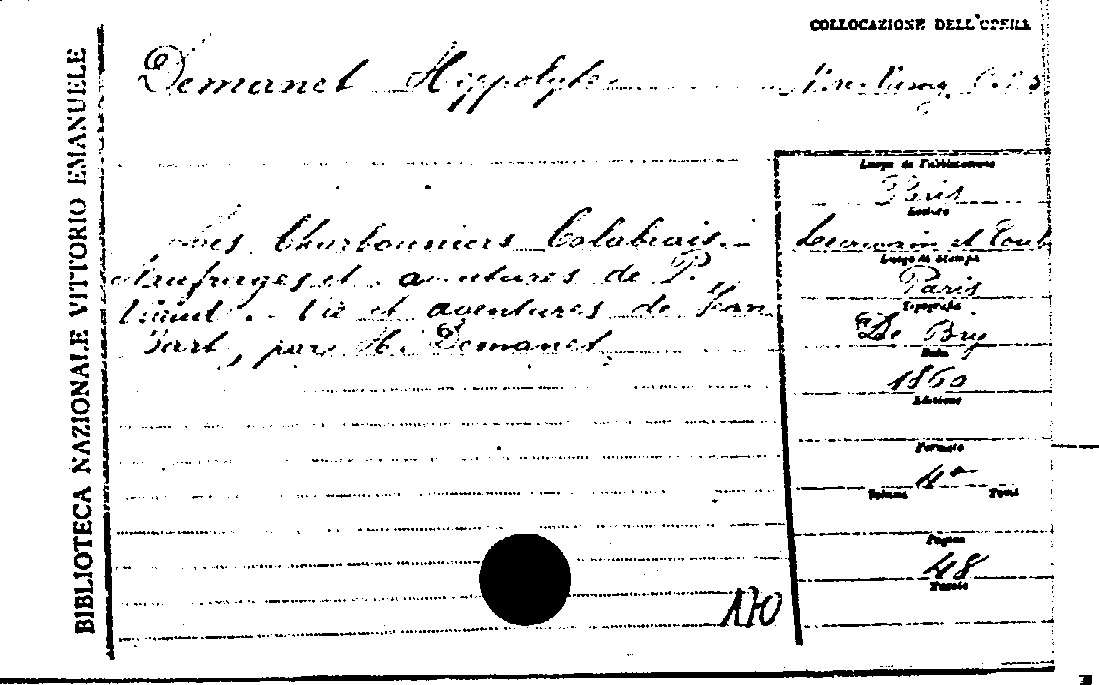 COLLOCAZIONE DELL'OPERA
BIBLIOTECA NAZIONALE VITTORIO EMANUELE
Demanet Hippolyte
Les Charbonniers Calabrais.
Naufrages et aventures de P.
Viaud. Vie et aventures de Jean
Bart, par H. Demanet.
Luogo di Pubblicazione
Paris
Editore
Lécrivain et Toub
Luogo di stampa
Paris
Tipografia
De Bry
Data
1860
Edizione
Formato
4º
Volume Tomi
Pagine
48
Tavole
170